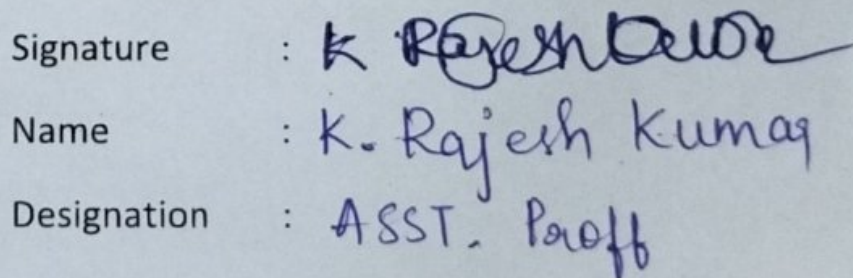 Signature : K Rajesh Kumar
Name : K. Rajesh Kumar
Designation : ASST. Proff